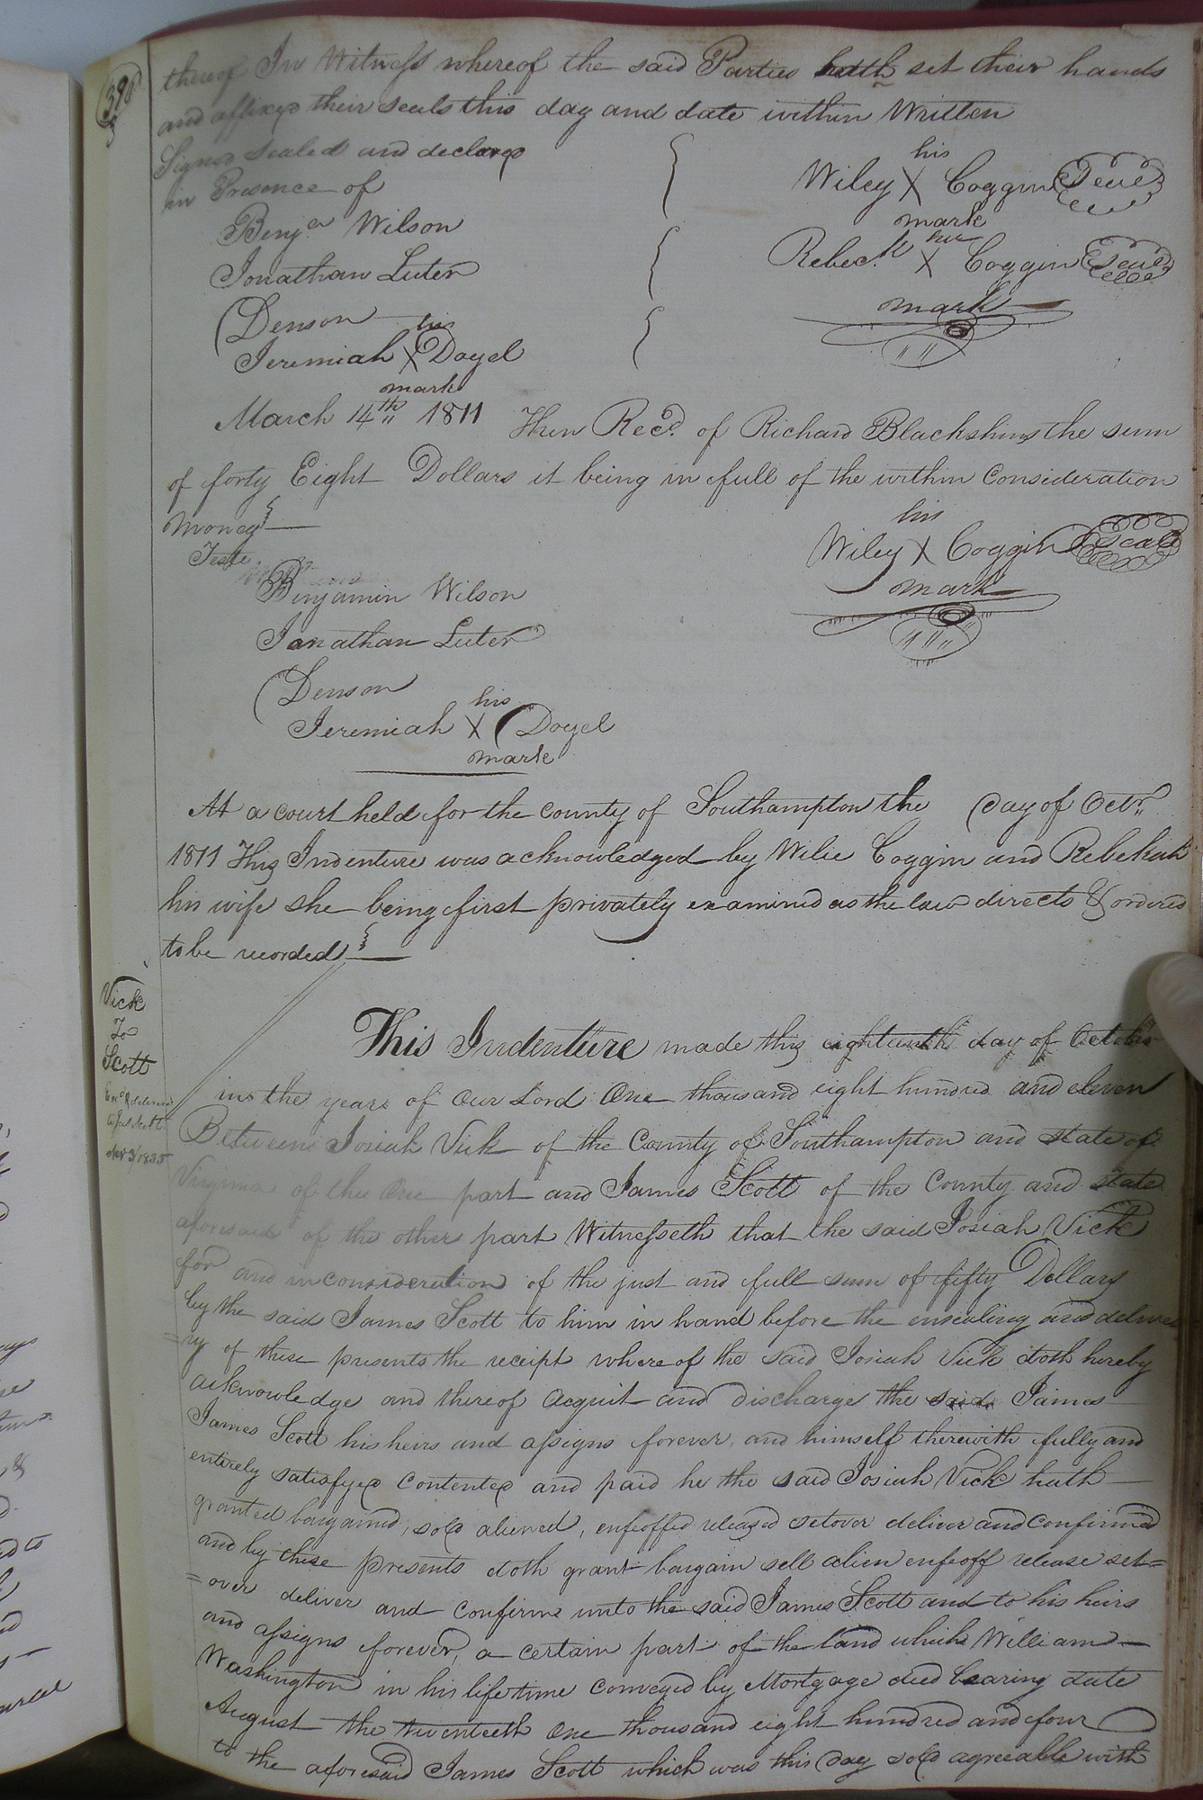 390
thereof In Witness whereof the said Parties hath set their hands
and affixed their seals this day and date within Written
Signed Sealed and declared
in Presence of
his
Wiley X Coggin Seal
mark
Benja Wilson
her
Rebech X Coggin Seal
mark
Jonathan Luter
Denson
his
Jeremiah X Doyel
mark
March 14th 1811 Then Recd. of Richard Blackshins the sum
of forty Eight Dollars it being in full of the within Consideration
Money
Teste
his
Wiley X Coggin Seal
mark
Benjamin Wilson
Jonathan Luter
Denson
his
Jeremiah X Doyel
mark
At a court held for the county of Southampton the day of Octr.
1811 This Indenture was acknowledged by Wilie Coggin and Rebekah
his wife she being first privately examined as the law directs & ordered
to be recorded
Vick
To
Scott
This Indenture made this eighteenth day of October
in the years of Our Lord One thousand eight hundred and eleven
Between Josiah Vick of the County of Southampton and state of
Virginia of the One part and James Scott of the County and state
aforesaid of the other part Witnesseth that the said Josiah Vick
for and in consideration of the just and full sum of fifty Dollars
by the said James Scott to him in hand before the ensealing and delive
=ry of these presents the receipt whereof the said Josiah Vick doth hereby
acknowledge and thereof acquit and discharge the said James
James Scott his heirs and assigns forever, and himself therewith fully and
entirely satisfyed Contented and paid he the said Josiah Vick hath
granted bargained, sold aliened, enfeoffed released setover deliver and confirmed
and by these presents doth grant bargain sell alien enfeoff release set=
=over deliver and confirm unto the said James Scott and to his heirs
and assigns forever, a certain part of the land which William
Washington in his lifetime conveyed by Mortgage deed bearing date
August the twentieth One thousand eight hundred and four
to the aforesaid James Scott which was this day sold agreeable with